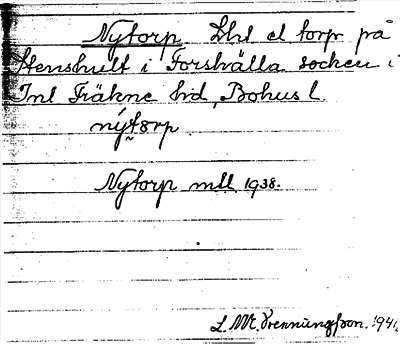 Nytorp Lht el torp på
Stenshult i Forshälla socken i
Inl Fräkne hd, Bohus l.
nýtorp
Nytorp mtl 1938.
L. M. Svenungsson. 1941.